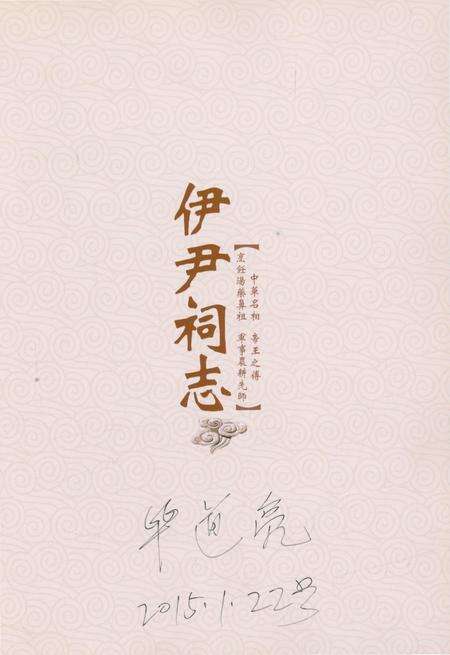 伊尹祠志
【中華名相 帝王之傅
烹飪湯藥鼻祖 軍事農耕先師】
毕道亮
2015.1.22号